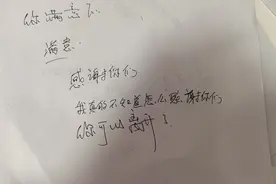 你满意了.
满意.
感谢你们
我真的不知道怎么感谢你们
你可以离开了